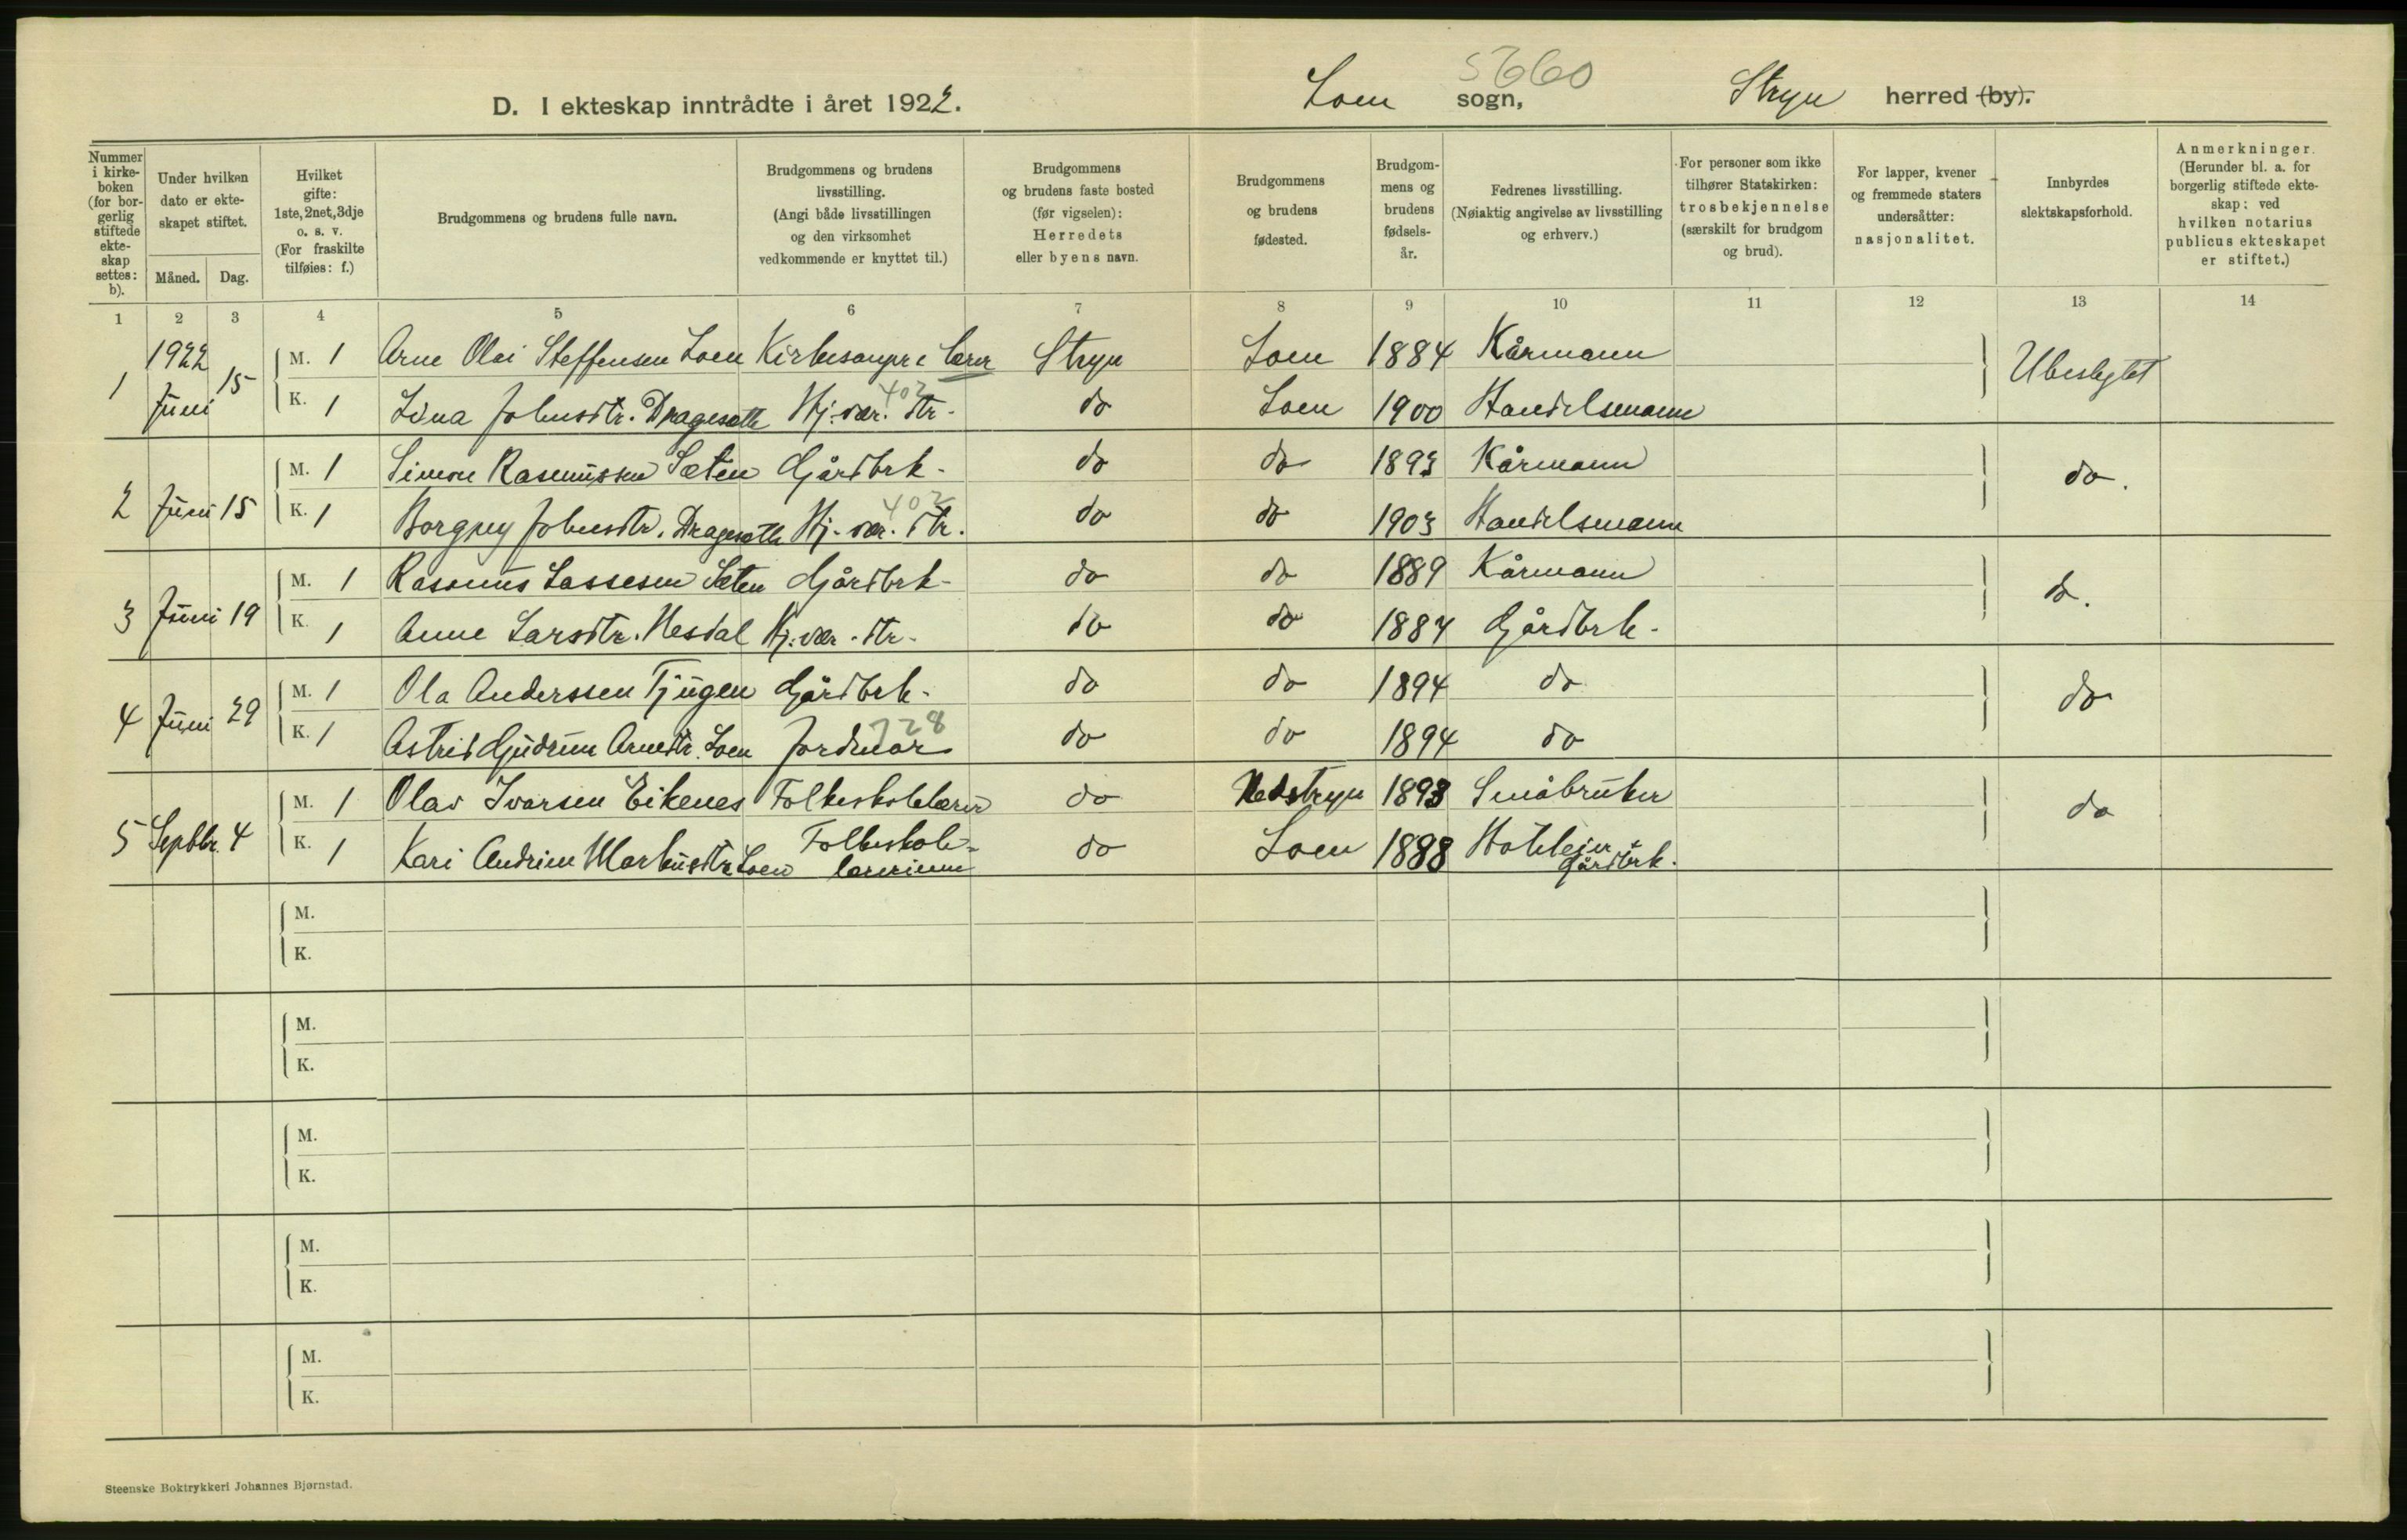 5660
D. I ekteskap inntrådte i året 1922. Loen sogn, Stryn herred (by).
Nummer i kirkeboken (for borgerlig stiftede ekteskap settes: b).
Under hvilken dato er ekteskapet stiftet.
Måned. Dag.
Hvilket gifte: 1ste, 2net, 3dje o. s. v. (For fraskilte tilføies: f.)
Brudgommens og brudens fulle navn.
Brudgommens og brudens livsstilling. (Angi både livsstillingen og den virksomhet vedkommende er knyttet til.)
Brudgommens og brudens faste bosted (før vigselen): Herredets eller byens navn.
Brudgommens og brudens fødested.
Brudgommens og brudens fødselsår.
Fedrenes livsstilling. (Nøiaktig angivelse av livsstilling og erhverv.)
For personer som ikke tilhører Statskirken: trosbekjennelse (særskilt for brudgom og brud).
For lapper, kvener og fremmede staters undersåtter: nasjonalitet.
Innbyrdes slektskapsforhold.
Anmerkninger. (Herunder bl. a. for borgerlig stiftede ekteskap: ved hvilken notarius publicus ekteskapet er stiftet.)
1 2 3 4 5 6 7 8 9 10 11 12 13 14
1 1922 Juni 15 M. 1 Arne Olai Steffensen Loen Kirkesanger lærer Stryn Loen 1884 Kårmann Ubeslegtet
K. 1 Lina Johnsdtr. Dragesætte Hj.vær. dtr. 402 do Loen 1900 Handelsmann
2 Juni 15 M. 1 Simon Rasmussen Sæten Gårdbrk. do do 1893 Kårmann do.
K. 1 Borgny Johnsdtr. Dragesætte Hj.vær. dtr. 402 do do 1903 Handelsmann
3 Juni 19 M. 1 Rasmus Lassesen Sæten Gårdbrk. do do 1889 Kårmann do.
K. 1 Anne Larsdtr. Nesdal Hj.vær. dtr. do do 1884 Gårdbrk.
4 Juni 29 M. 1 Ola Anderssen Tjugen Gårdbrk. do do 1894 do do
K. 1 Astrid Gjudrun Arnesdtr. Loen Jordmor 728 do do 1894 do
5 Septbr. 4 M. 1 Olav Ivarsen Eikenes Folkeskolelærer do Nedstryn 1893 Småbruker do
K. 1 Kari Andrine Markusdtr. Loen Folkeskolelærerinne do Loen 1888 Hotteleier & Gårdbrk.
M.
K.
M.
K.
M.
K.
M.
K.
M.
K.
Steenske Boktrykkeri Johannes Bjørnstad.